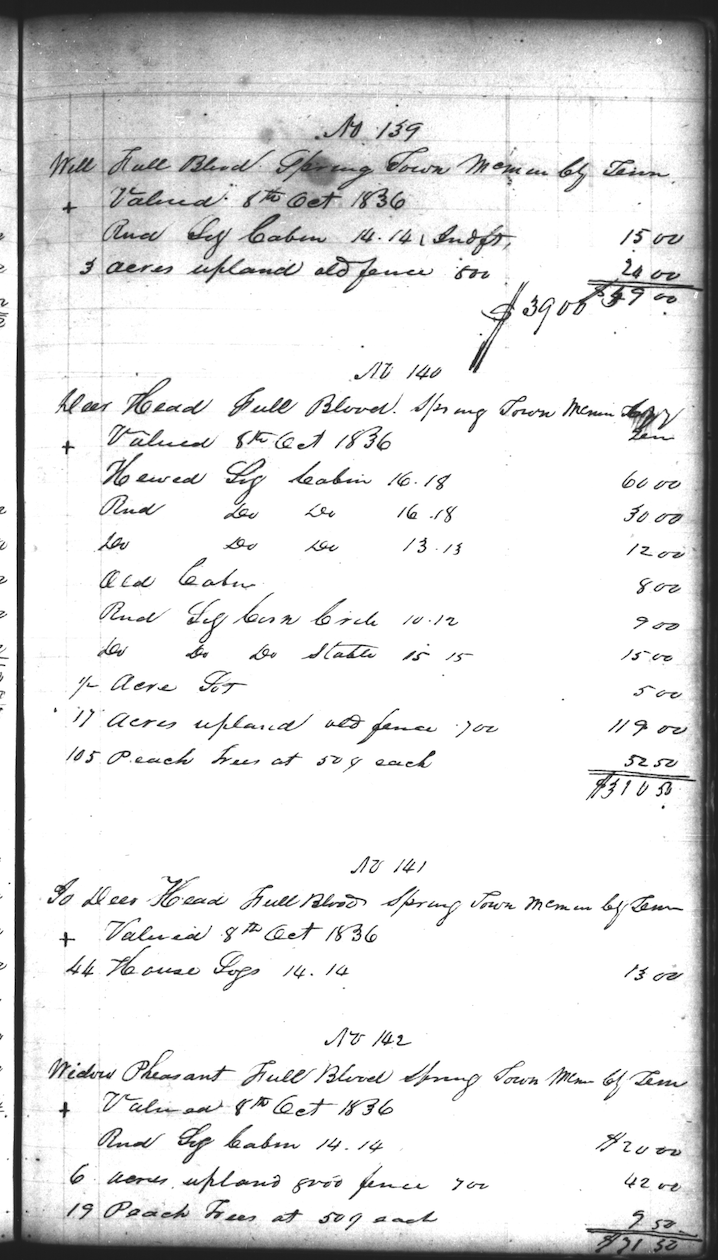 No 139
Will Full Blood Spring Town Mcminn Cty Tenn
+ Valued 8th Oct 1836
Rnd Log Cabin 14.14 Indft, 15 00
3 acres upland old fence 800 24 00
$ 39 00 $ 39 00
No 140
Deer Head Full Blood. Spring Town Mcminn Cty
+ Valued 8th Oct 1836 Ten
Hewed Log Cabin 16.18 60 00
Rnd Do Do 16.18 30 00
Do Do Do 13.13 12 00
Old Cabin 8 00
Rnd Log Corn Crib 10.12 9 00
Do Do Do Stable 15 15 15 00
1/2 Acre Lot 5 00
17 Acres upland old fence 700 119 00
105 Peach Trees at 50¢ each 52 50
$310 50
No 141
Jo Deer Head Full Blood Spring Town Mcminn Cty Tenn
+ Valued 8th Oct 1836
44 House Logs 14.14 13 00
No 142
Widow Pheasant Full Blood Spring Town Mcmn Cty Tenn
+ Valued 8th Oct 1836
Rnd Log Cabin 14.14 $20 00
6 acres upland good fence 700 42 00
19 Peach Trees at 50¢ each 9 50
$71 50